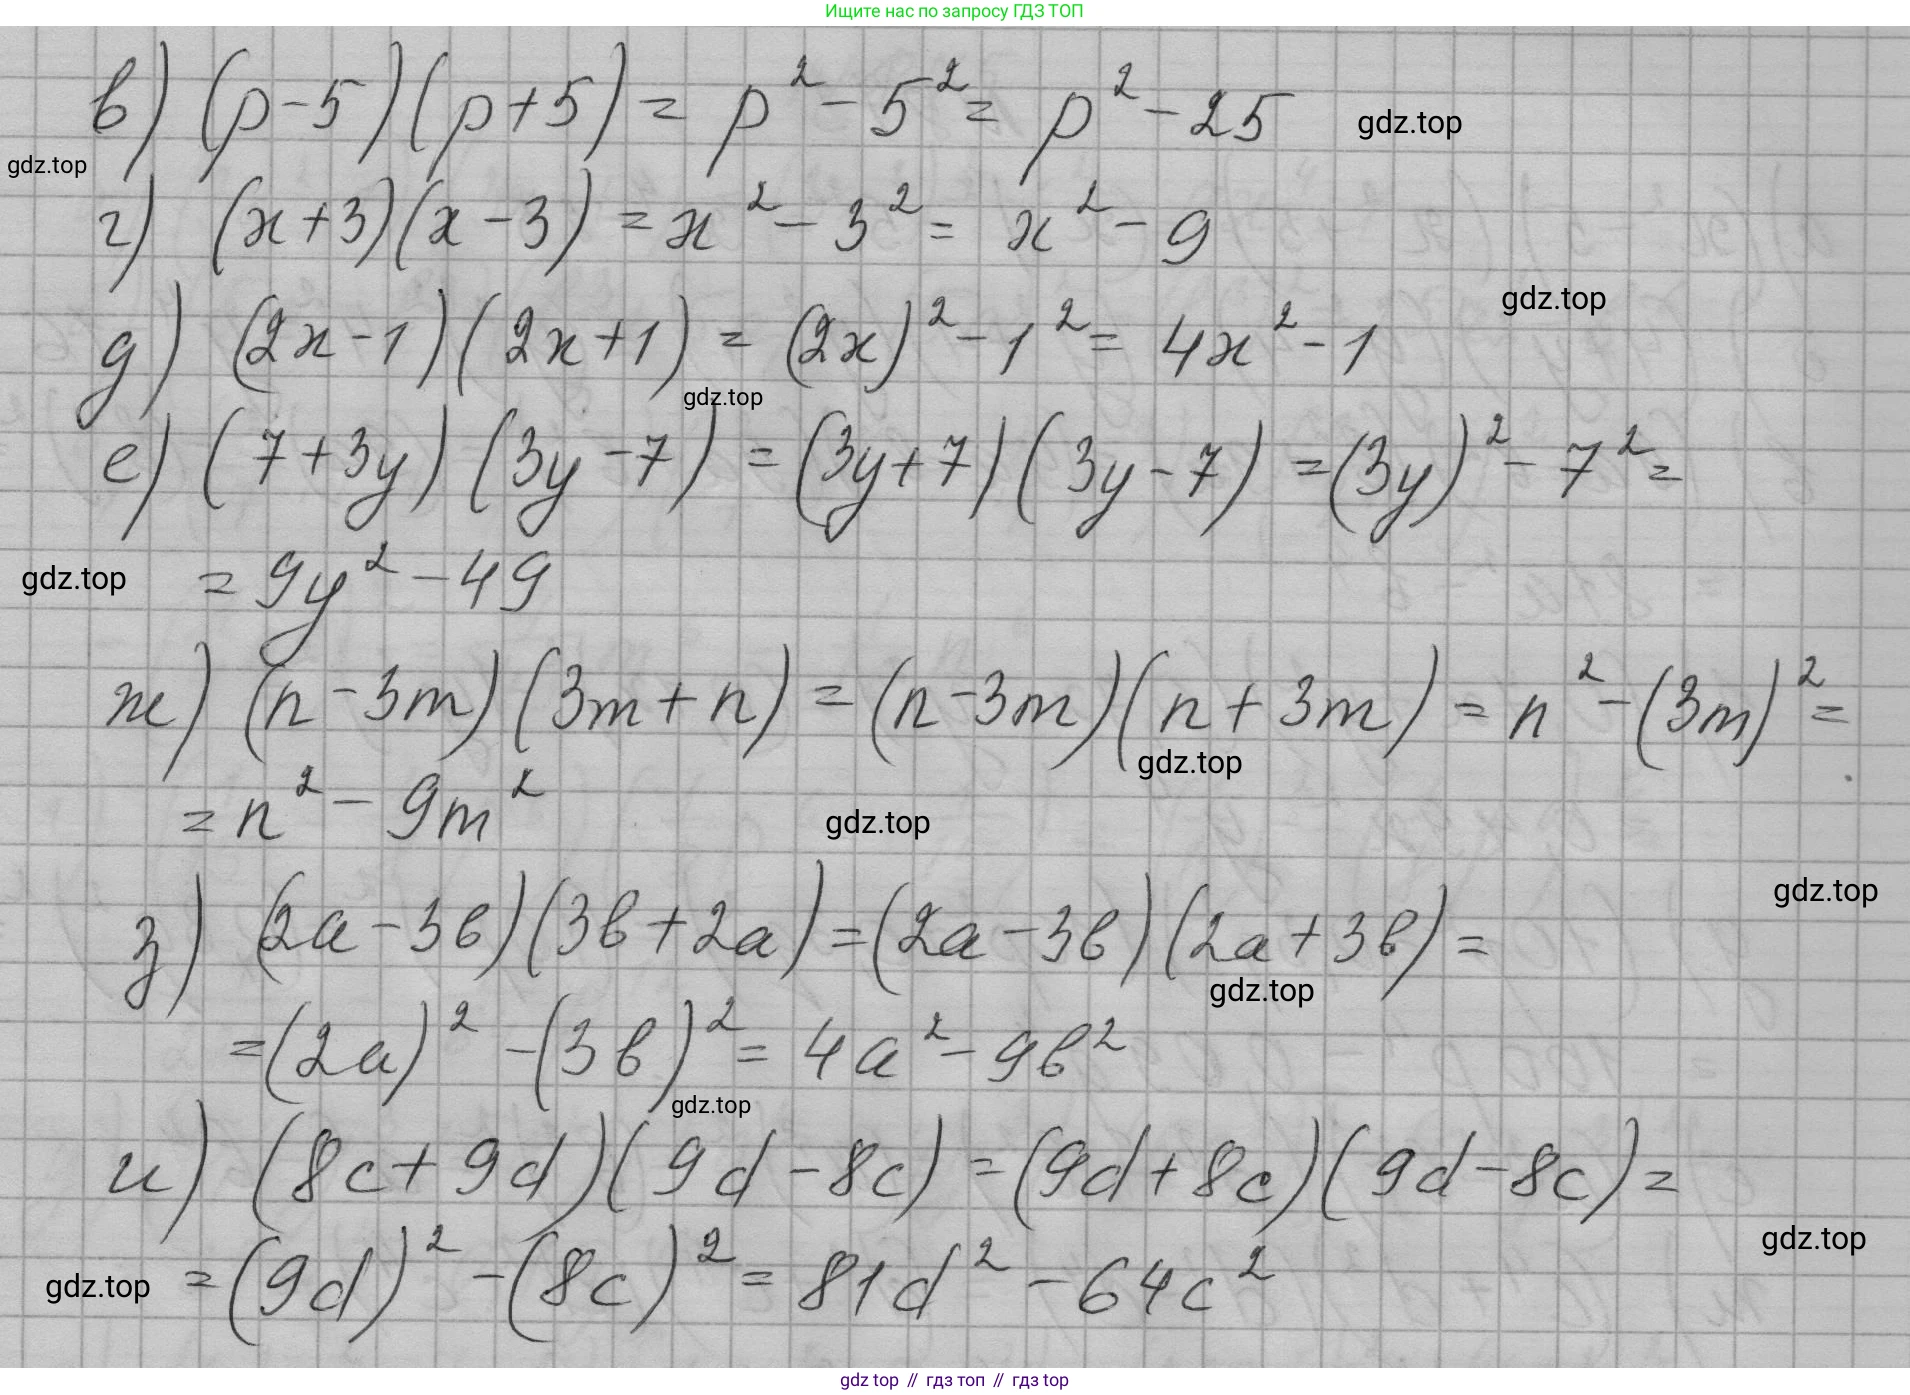 Ищите нас по запросу ГДЗ ТОП
в) (p-5)(p+5) = p² - 5² = p² - 25
gdz.top
gdz.top
г) (x+3)(x-3) = x² - 3² = x² - 9
gdz.top
д) (2x-1)(2x+1) = (2x)² - 1² = 4x² - 1
gdz.top
е) (7+3y)(3y-7) = (3y+7)(3y-7) = (3y)² - 7² =
gdz.top
= 9y² - 49
ж) (n-3m)(3m+n) = (n-3m)(n+3m) = n² - (3m)² =
gdz.top
= n² - 9m²
gdz.top
gdz.top
з) (2a-3в)(3в+2a) = (2a-3в)(2a+3в) =
gdz.top
= (2a)² - (3в)² = 4a² - 9в²
gdz.top
и) (8c+9d)(9d-8c) = (9d+8c)(9d-8c) =
gdz.top
gdz.top
= (9d)² - (8c)² = 81d² - 64c²
gdz top // гдз топ // гдз top